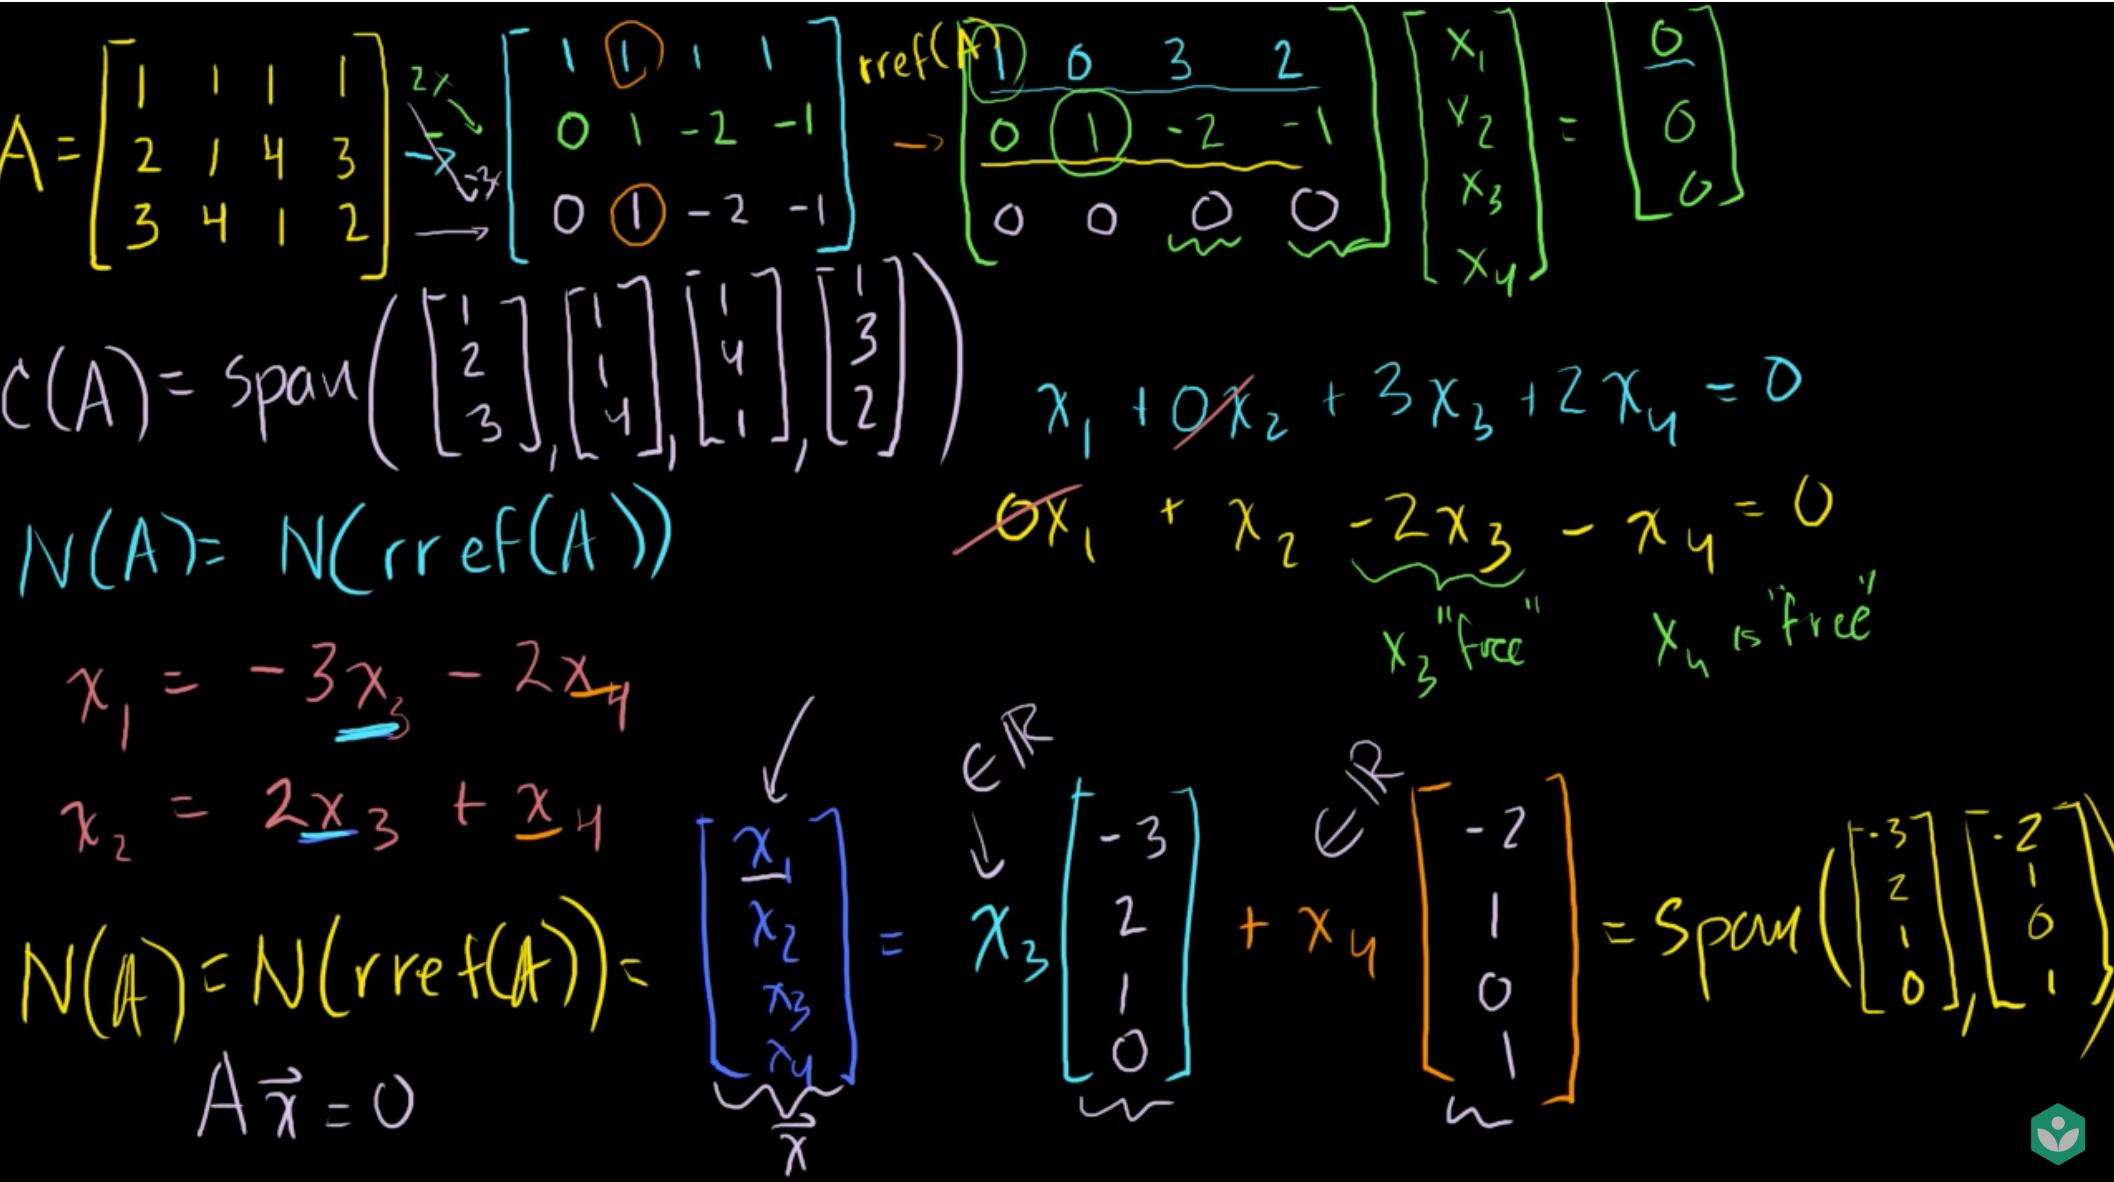 A = [1 1 1 1; 2 1 4 3; 3 4 1 2] 2x -3x → [1 1 1 1; 0 1 -2 -1; 0 1 -2 -1] → rref(A) [1 0 3 2; 0 1 -2 -1; 0 0 0 0] [x₁; x₂; x₃; x₄] = [0; 0; 0]
C(A) = span([1; 2; 3], [1; 1; 4], [1; 4; 1], [1; 3; 2])
x₁ + 0x₂ + 3x₃ + 2x₄ = 0
N(A) = N(rref(A))
0x₁ + x₂ - 2x₃ - x₄ = 0
x₃ "free" x₄ is "free"
x₁ = -3x₃ - 2x₄
x₂ = 2x₃ + x₄
∈ℝ ∈ℝ
N(A) = N(rref(A)) = [x₁; x₂; x₃; x₄] = x₃ [-3; 2; 1; 0] + x₄ [-2; 1; 0; 1] = Span([-3; 2; 1; 0], [-2; 1; 0; 1])
Ax⃗ = 0
x⃗